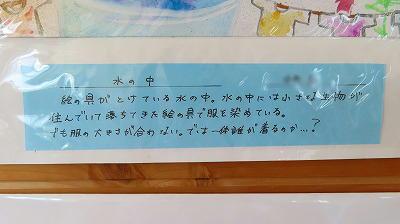 水の中
絵の具がとけている水の中。水の中には小さな生物が
住んでいて落ちてきた絵の具で服を染めている。
でも服の大きさが合わない。では一体誰が着るのか…?